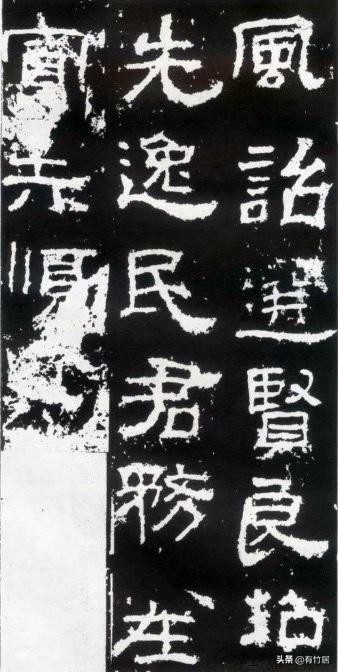 風詔選賢良招
先逸民君務在
寬失順
头条 @有竹居